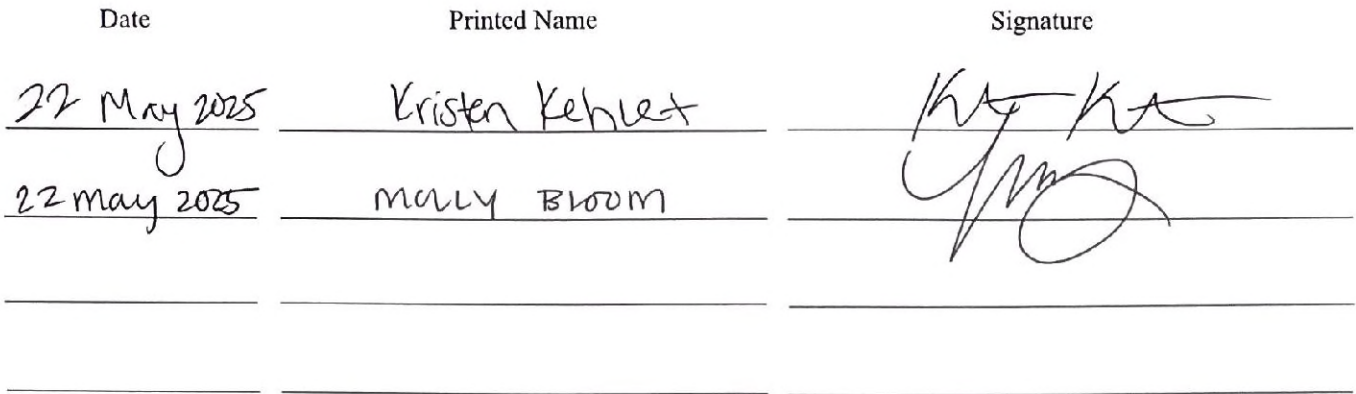 Date Printed Name Signature
22 May 2025 Kristen Kehlet
22 may 2025 MOLLY BLOOM